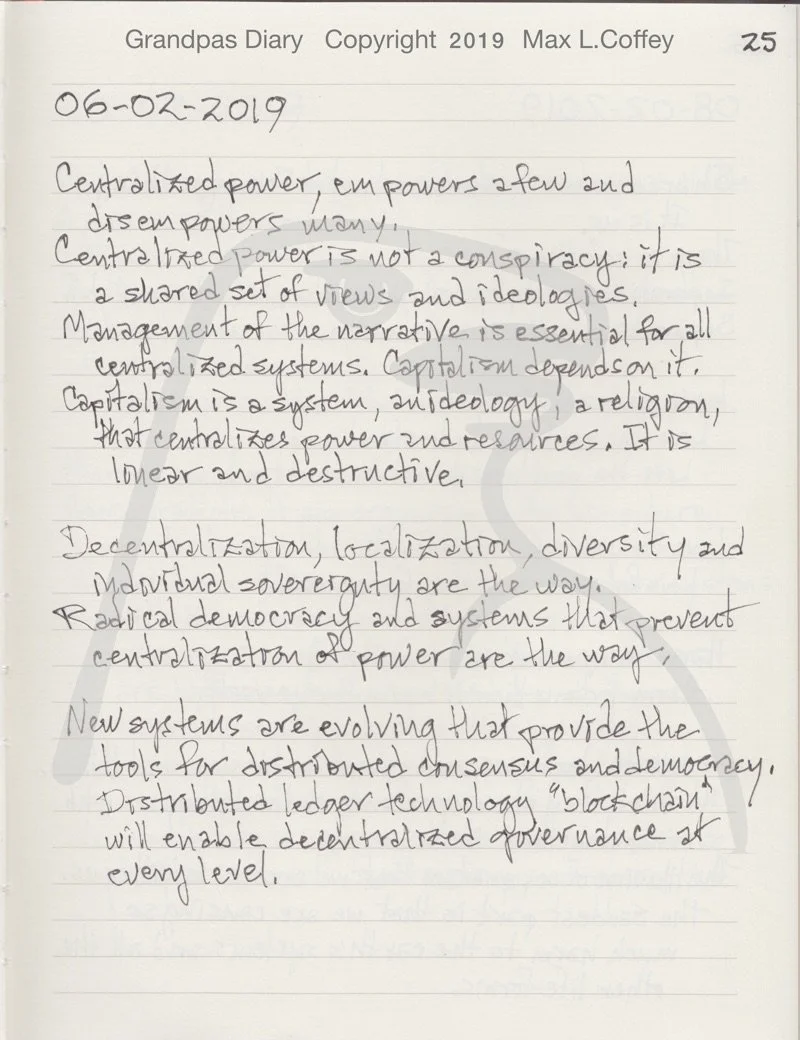 Grandpas Diary Copyright 2019 Max L.Coffey 25
06-02-2019
Centralized power, empowers a few and
disempowers many.
Centralized power is not a conspiracy: it is
a shared set of views and ideologies.
Management of the narrative is essential for all
centralized systems. Capitalism depends on it.
Capitalism is a system, an ideology, a religion,
that centralizes power and resources. It is
linear and destructive.
Decentralization, localization, diversity and
individual sovereignty are the way.
Radical democracy and systems that prevent
centralization of power are the way.
New systems are evolving that provide the
tools for distributed consensus and democracy.
Distributed ledger technology "blockchain"
will enable decentralized governance at
every level.